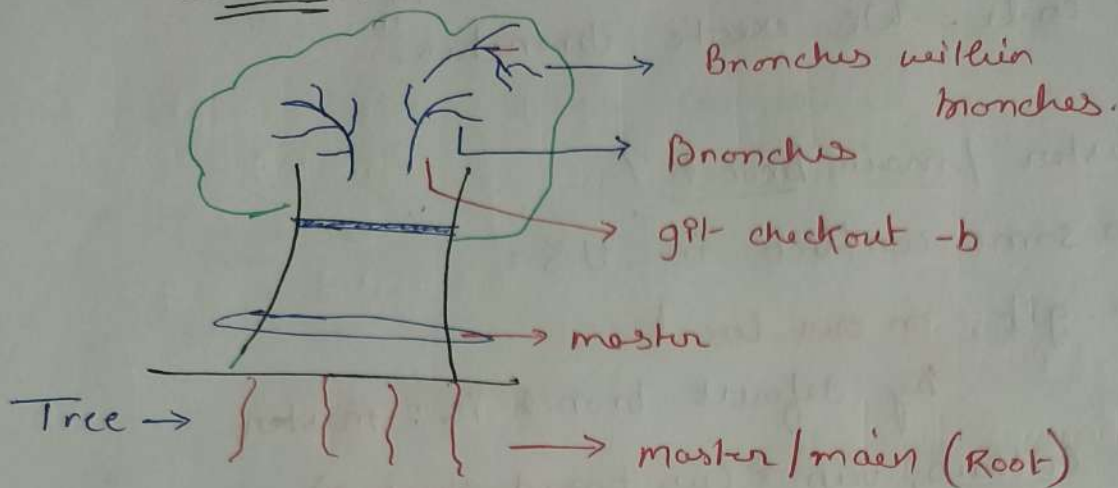 Branches within
branches.
Branches
git checkout -b
master
Tree →
master/main (Root)